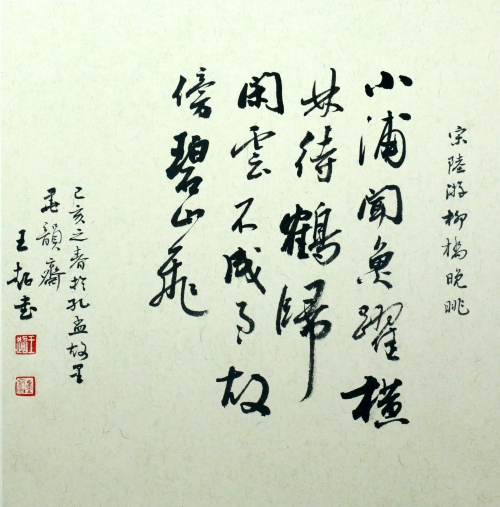 宋陸游柳橋晚眺
小浦聞魚躍橫
林待鶴歸
閑雲不成雨故
傍碧山飛
己亥之春於孔孟故里
韻齋
王书